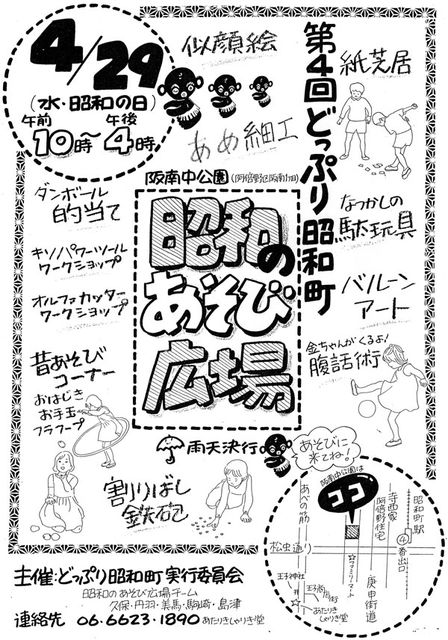 4/29
(水・昭和の日)
午前10時〜午後4時
似顔絵
あめ細工
第4回どっぷり昭和町
紙芝居
阪南中公園(阿倍野区阪南町1丁目)
昭和の
あそび
広場
ダンボール
的当て
キソパワーツール
ワークショップ
オルファカッター
ワークショップ
昔あそび
コーナー
おはじき
お手玉
フラフープ
なつかしの
駄玩具
バルーン
アート
金ちゃんがくるよ!
腹話術
雨天決行
あそびに
来てね!
割りばし
鉄砲
阪南中公園は
ココ
あべの筋
松虫通り
王子神社
あたりき
しゃりき堂
寺西家
阿倍野住宅
昭和町駅
④番出口
庚申街道
主催:どっぷり昭和町実行委員会
昭和のあそび広場チーム
久保・丹羽・美馬・駒崎・島津
連絡先 06.6623-1890 あたりきしゃりき堂